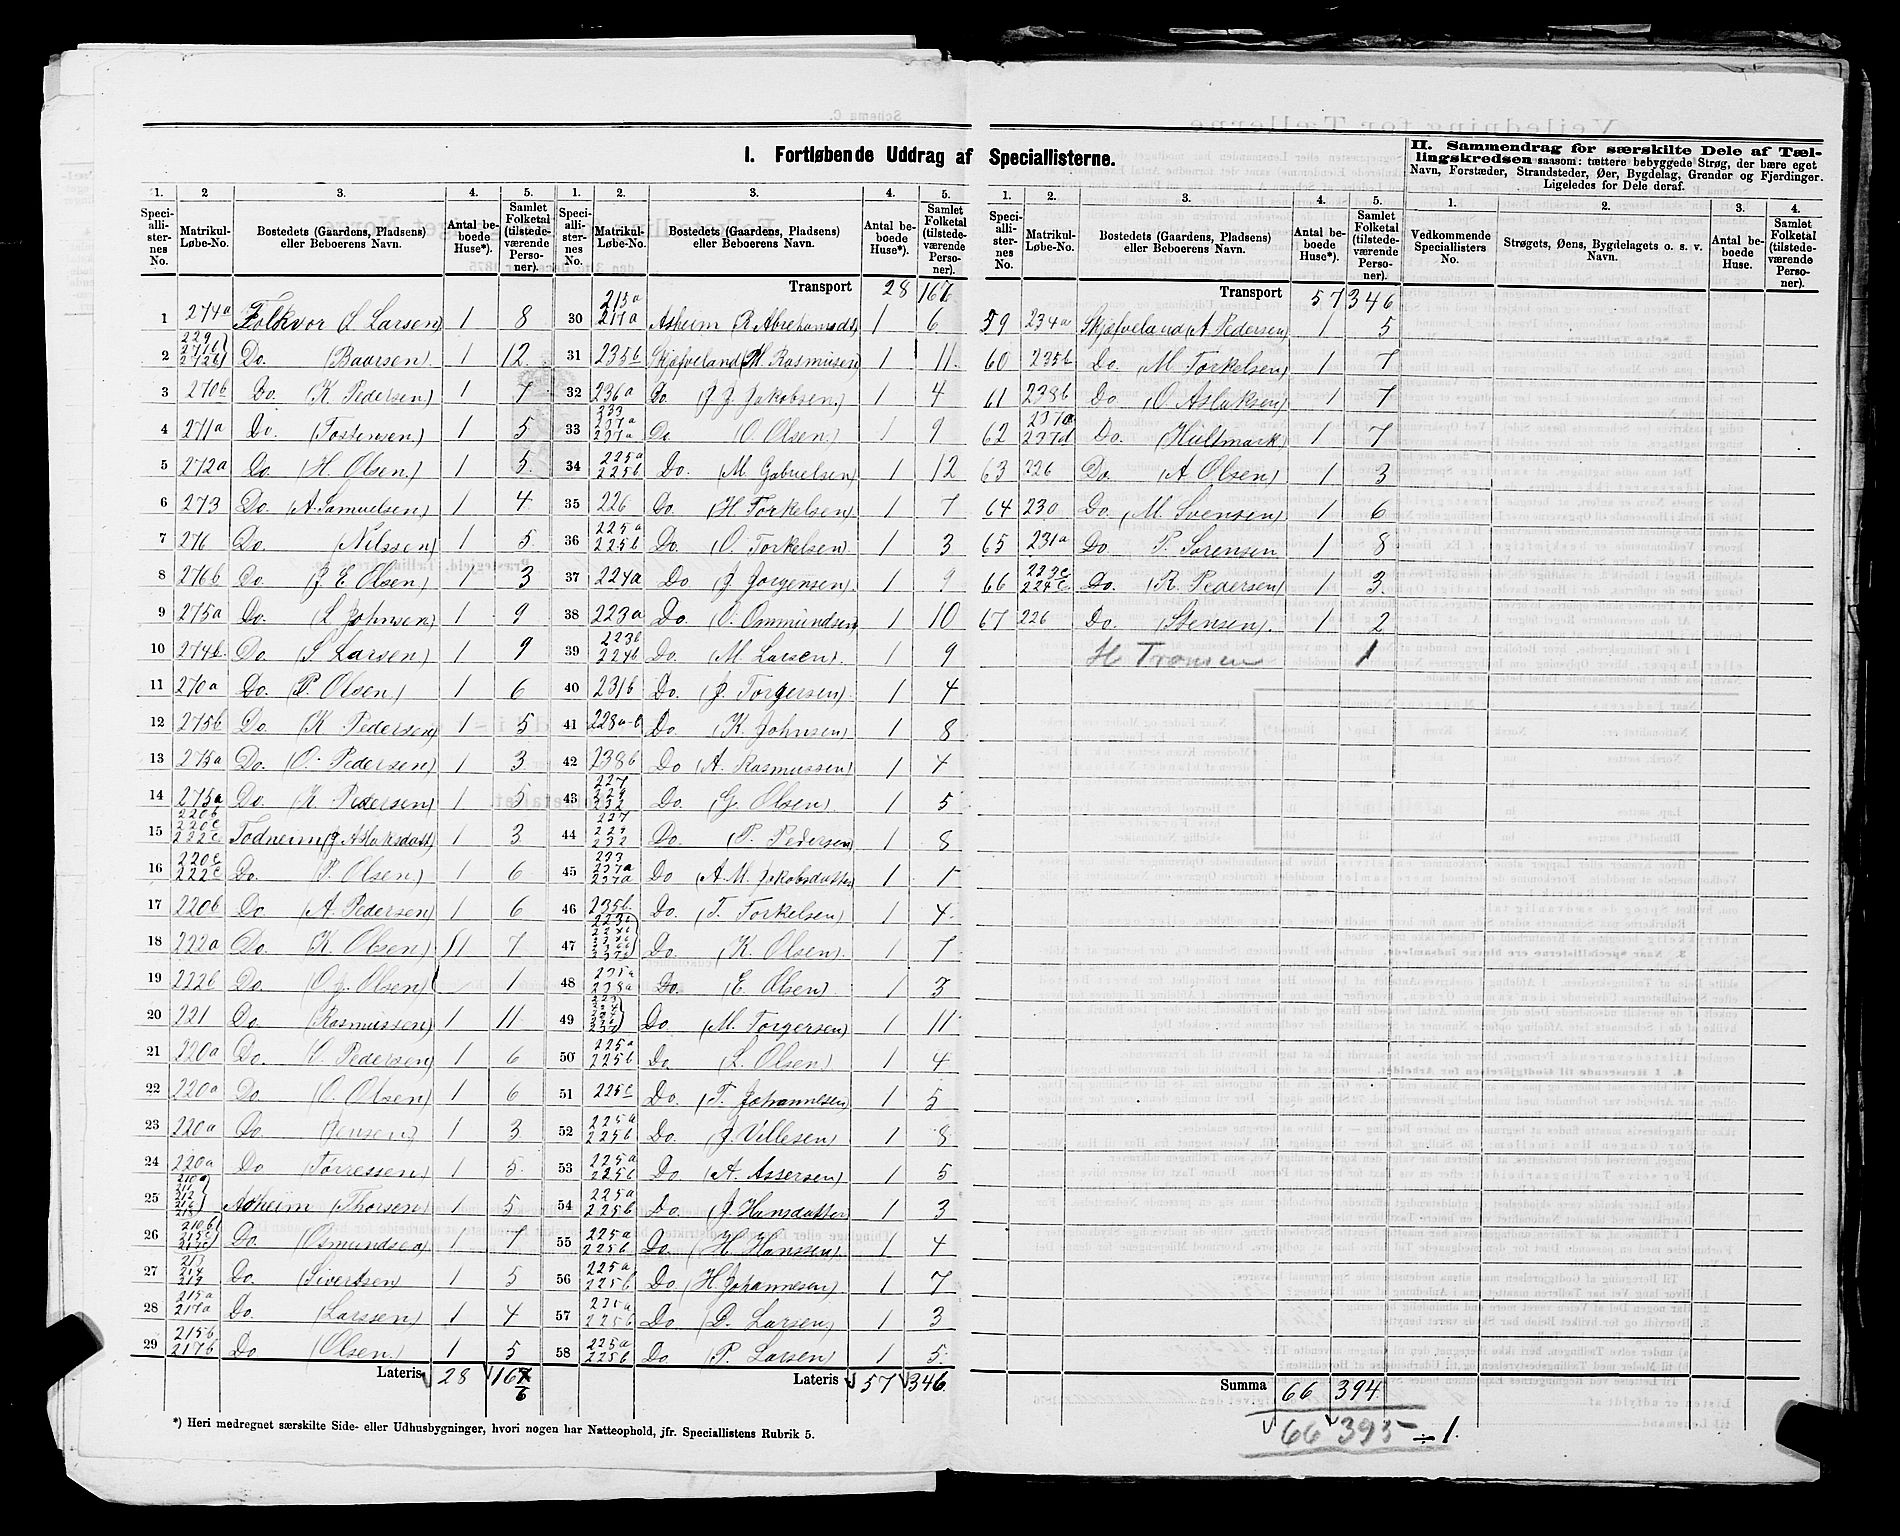 I. Fortløbende Uddrag af Speciallisterne.
II. Sammendrag for særskilte Dele af Tæl-
lingskredsen saasom: tættere bebyggede Strøg, der bære eget
Navn, Forstæder, Strandsteder, Øer, Bygdelag, Grender og Fjerdinger.
Ligeledes for Dele deraf.
1. 2 3. 4. 5. 1. 2. 3. 4. 5. 1. 2. 3. 4. 5. 1. 2. 3. 4.
Speciallisternes No. Matrikul-Løbe-No. Bostedets (Gaardens, Pladsens) eller Beboerens Navn. Antal beboede Huse*). Samlet Folketal (tilstedeværende Personer).
Speciallisternes No. Matrikul-Løbe-No. Bostedets (Gaardens, Pladsens) eller Beboerens Navn. Antal beboede Huse*). Samlet Folketal (tilstedeværende Personer).
Speciallisternes No. Matrikul-Løbe-No. Bostedets (Gaardens, Pladsens) eller Beboerens Navn. Antal beboede Huse*). Samlet Folketal (tilstedeværende Personer).
Vedkommende Speciallisters No. Strøgets, Øens, Bygdelagets o. s. v. Navn. Antal beboede Huse. Samlet Folketal (tilstedeværende Personer).
1 274a Folkvor (L Larsen) 1 8
2 229 271b 272b Do. (Baarsen) 1 12.
3 270b Do. (K Pedersen) 1 7
4 271a Do. (Tostensen) 1 5
5 272a Do. (H. Olsen) 1 5
6 273 Do. (A. Samuelsen) 1 4
7 276 Do. (Nilssen) 1 5.
8 276b Do. (J E Olsen) 1 3
9 275a Do. (L Johnsen) 1 9
10 274b. Do. (S Larsen) 1 9
11 270a Do. (P. Olsen) 1 6
12 275b Do. (K Pedersen) 1 5
13 275a Do. (O. Pedersen) 1 3
14 275a Do. (K Pedersen) 1 5
15 220b 220c 222c Todneim (J Aslaksdatt) 1 3
16 220c 222c Do. (P. Olsen) 1 6
17 220b Do (A. Pedersen) 1 6
18 222a Do. (K. Olsen) 1 7
19 222b Do. (O. J. Olsen) 1
20 221 Do (Rasmussen) 1 11
21 220a Do (S. Pedersen) 1 6
22 220a Do (O. Olsen) 1 6
23 220a Do (Jensen) 1 3
24 220a Do (Torressen) 1 5.
25 210a 211 212 216 Asheim (Thorsen) 1 5
26 210b 215c 217c Do. (Osmundsen) 1 7
27 213 214 219 Do. (Sivertsen) 1 5
28 215a 217a Do (Larssen) 1 4
29 215b 217b Do (Olsen.) 1 5
Lateris 28 167 6
Transport 28 167
30 215a 217a Asheim (R. Abrehamsdt) 1 6
31 235b Skjæveland (M Rasmusen) 1 11.
32 236a Do. (J. J. Jakobsen) 1 4
33 233 237a 237a Do (O. Olsen) 1 9
34 225a 225b Do. (M. Gabrielsen) 1 12
35 226 Do. (H. Torkelsen) 1 7
36 225a 225b Do. (O. Torkelsen 1 3
37 224a Do (J Jorgensen) 1 9
38 223a Do. (O. Ommundsen) 1 10
39 223b 224b Do. (M. Larsen). 1 9
40 231b Do. (J. Torgersen) 1 4
41 228a-b Do (K. Johnsen) 1 8
42 238b Do (A. Rasmussen) 1 4
43 227 229 232 Do (G. Olsen) 1 5
44 227 229 232 Do (P. Pedersen) 1 8
45 233 237a 237a Do (A. M. Jakobsdatter) 1 1
46 235b. Do. (T. Torkelsen) 1 4.
47 223b Do (K. Olsen). 1 7
48 235a 238a Do. (E. Olsen) 1 3
49 223 Do (M. Torgersen) 1 11
50 225a 225b Do (L. Olsen) 1 4
51 225c Do. (T. Johannesen) 1 5
52 225a 225b Do. (J. Villesen) 1 8
53 225a 225b Do (A. Assersen) 1 5
54 225a 225b Do. (J. Hansdatter 1 3
55 225a 225b Do (H Hanssen) 1 4
56 225a 225b Do (H. Johannesen) 1 7
57 225a 225b Do (D. Larsen) 1 3
58 225a 225b Do. (P. Larsen) 1 5.
Lateris 57 346
Transport 57 346
59 234a Skjæveland (A Pedersen) 1 5
60 235b Do. (M. Torkelsen) 1 7
61 238b Do (O. Aslaksen) 1 7
62 237a 237d Do. (Hultmark) 1 7
63 226 Do. (A Olsen) 1 3
64 230 Do. (M. Svensen) 1 6
65 231a Do P. Sørensen 1 8
66 223c 224c Do. (R. Pedersen) 1 3.
67 226 Do. (Stensen). 1 2
H Tronsen 1
Summa 66 394
66 395 ÷ 1.
*) Heri medregnet særskilte Side- eller Udhusbygninger, hvori nogen har Natteophold, jfr. Speciallistens Rubrik 5.